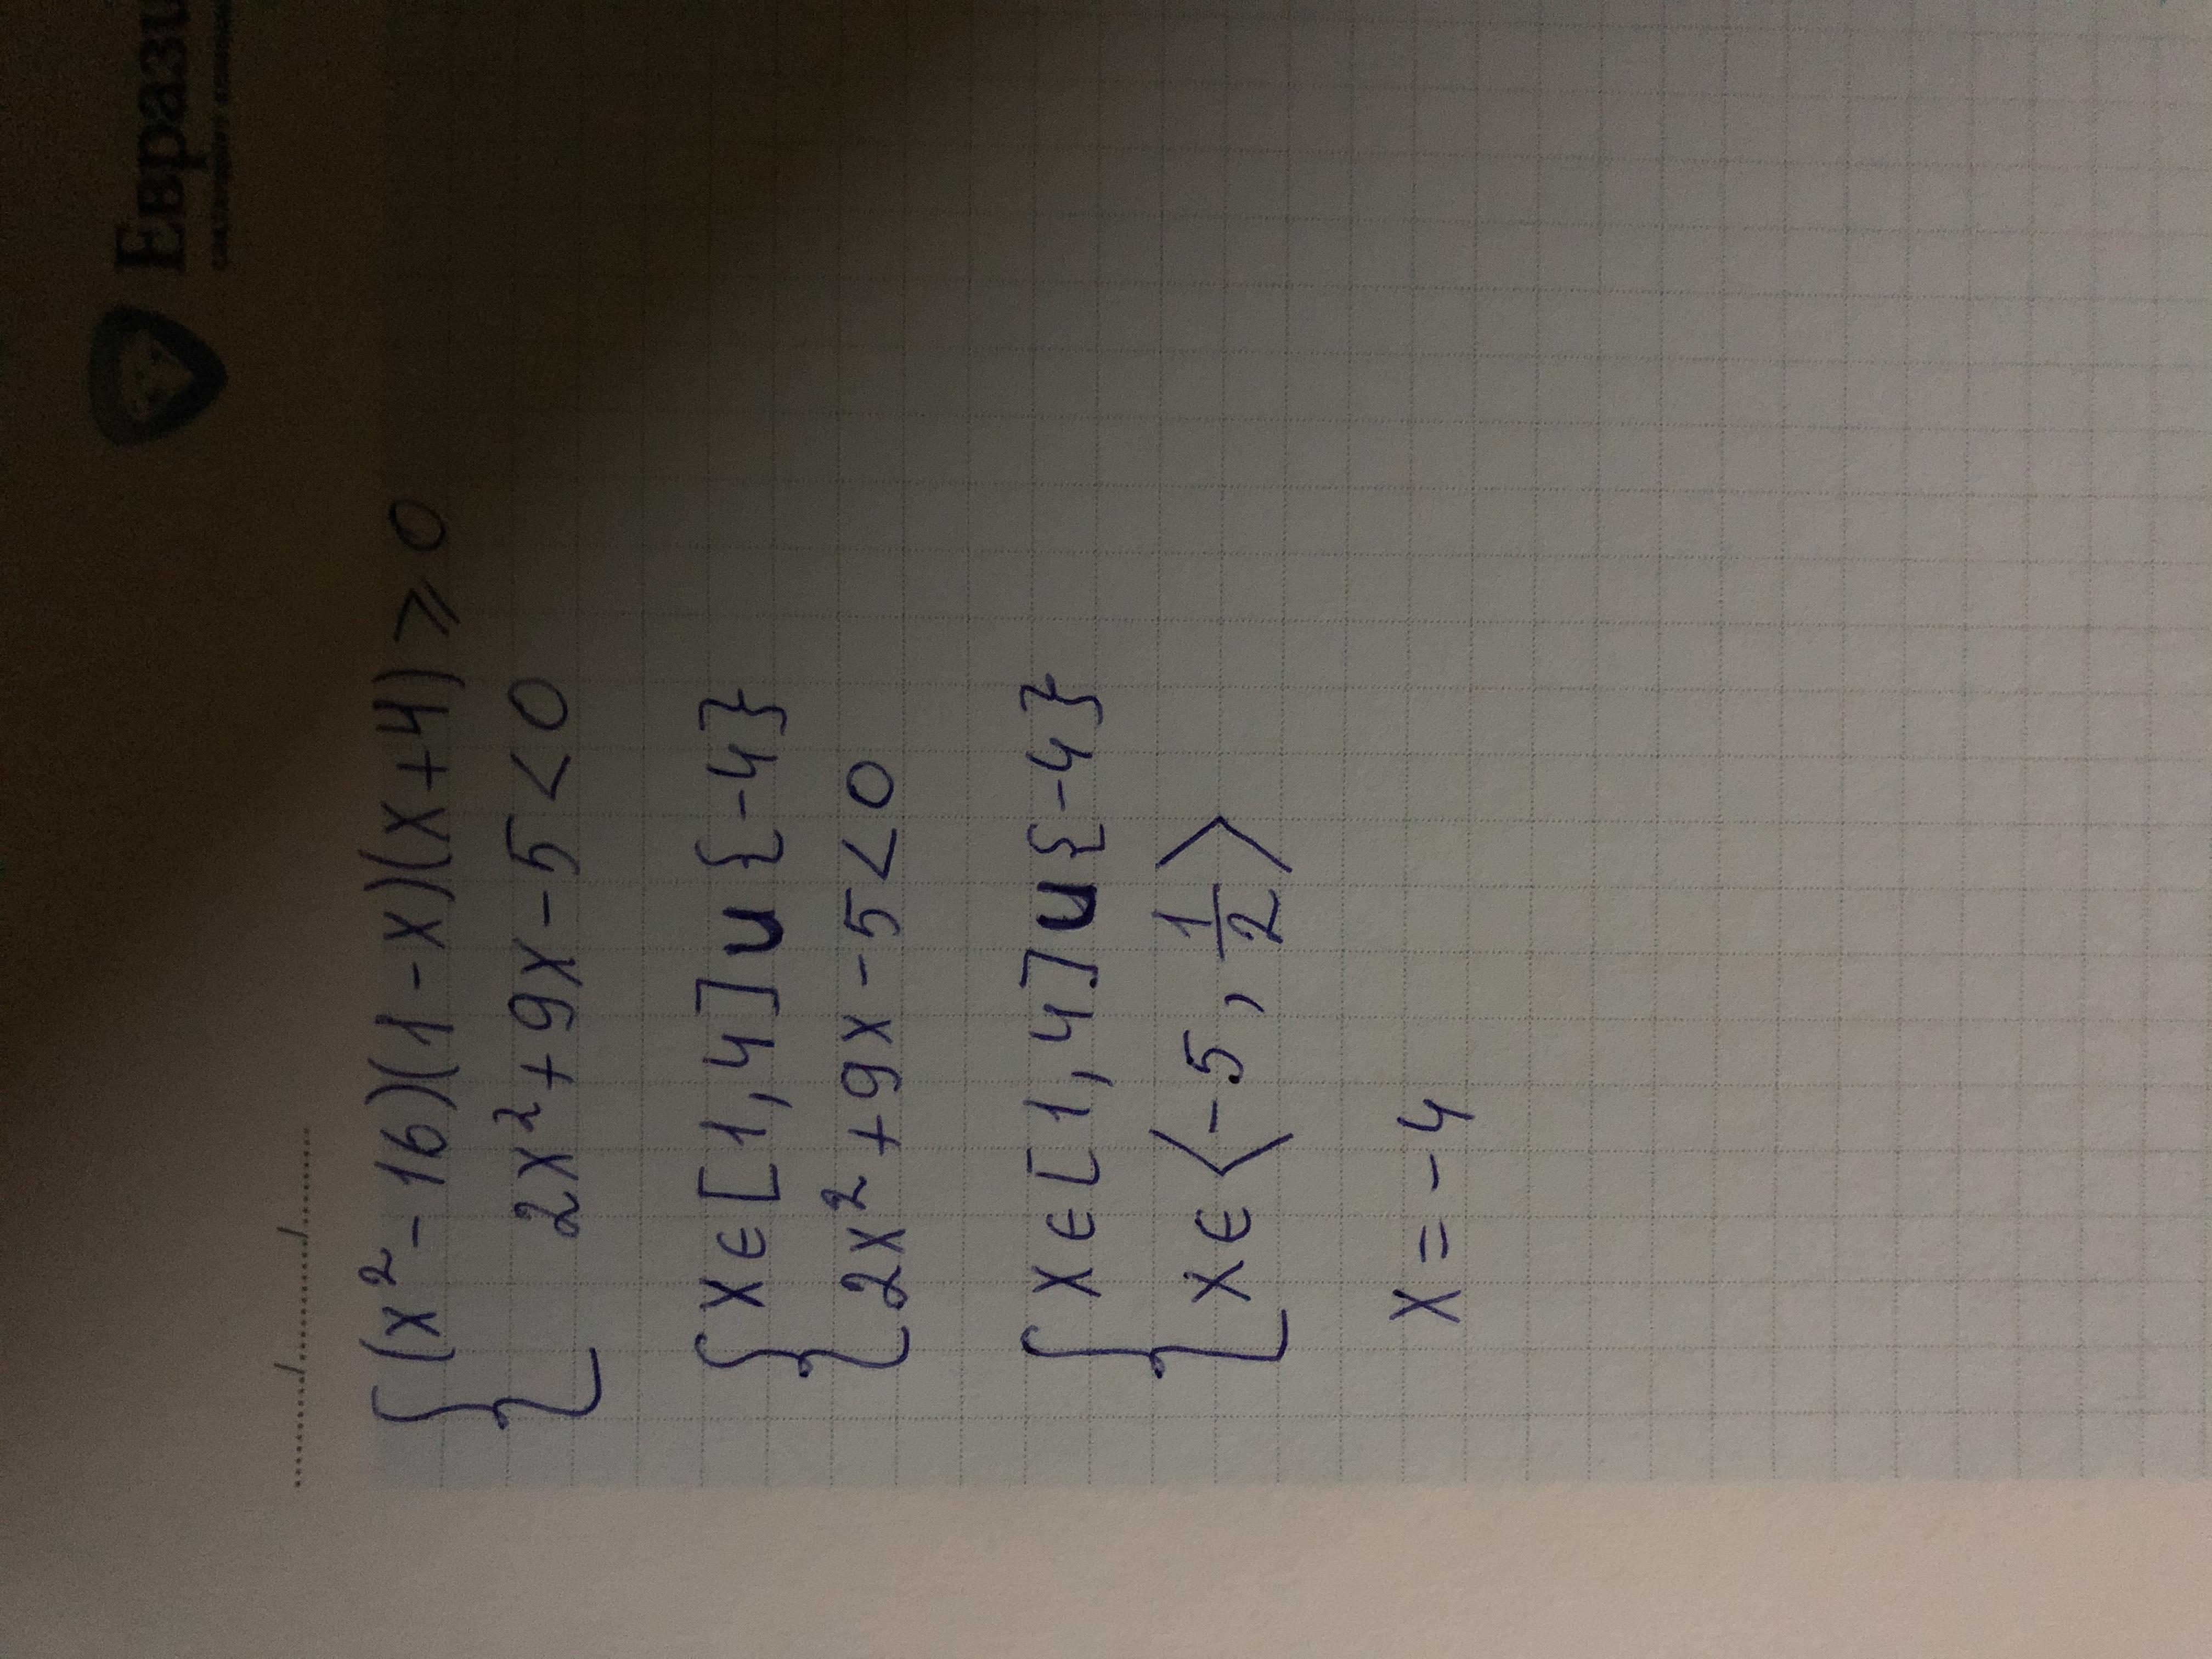 Еврази
(x² - 16)(1 - x)(x + 4) ⩾ 0
2x² + 9x - 5 < 0
x ∈ [1, 4] ∪ {-4}
2x² + 9x - 5 < 0
x ∈ [1, 4] ∪ {-4}
x ∈ <-5, 1/2>
x = -4